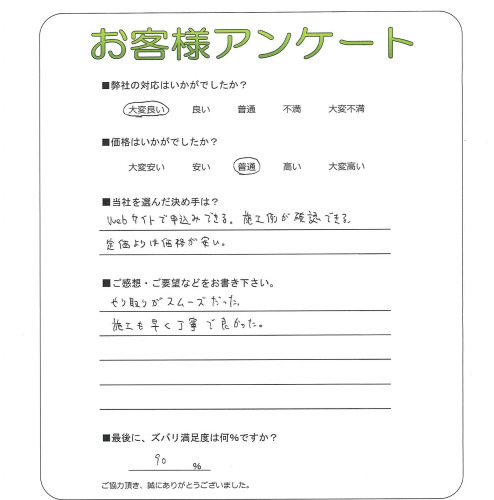 お客様アンケート
■弊社の対応はいかがでしたか？
大変良い 良い 普通 不満 大変不満
■価格はいかがでしたか？
大変安い 安い 普通 高い 大変高い
■当社を選んだ決め手は？
Webサイトで申込みできる。施工例が確認できる
定価よりは価格が安い。
■ご感想・ご要望などをお書き下さい。
やり取りがスムーズだった
施工も早く丁寧で良かった。
■最後に、ズバリ満足度は何%ですか？
90 %
ご協力頂き、誠にありがとうございました。